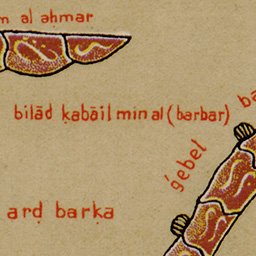 m al aḥmar
bilād ḳabāil min al (barbar)
ǵebel
arḍ barḳa